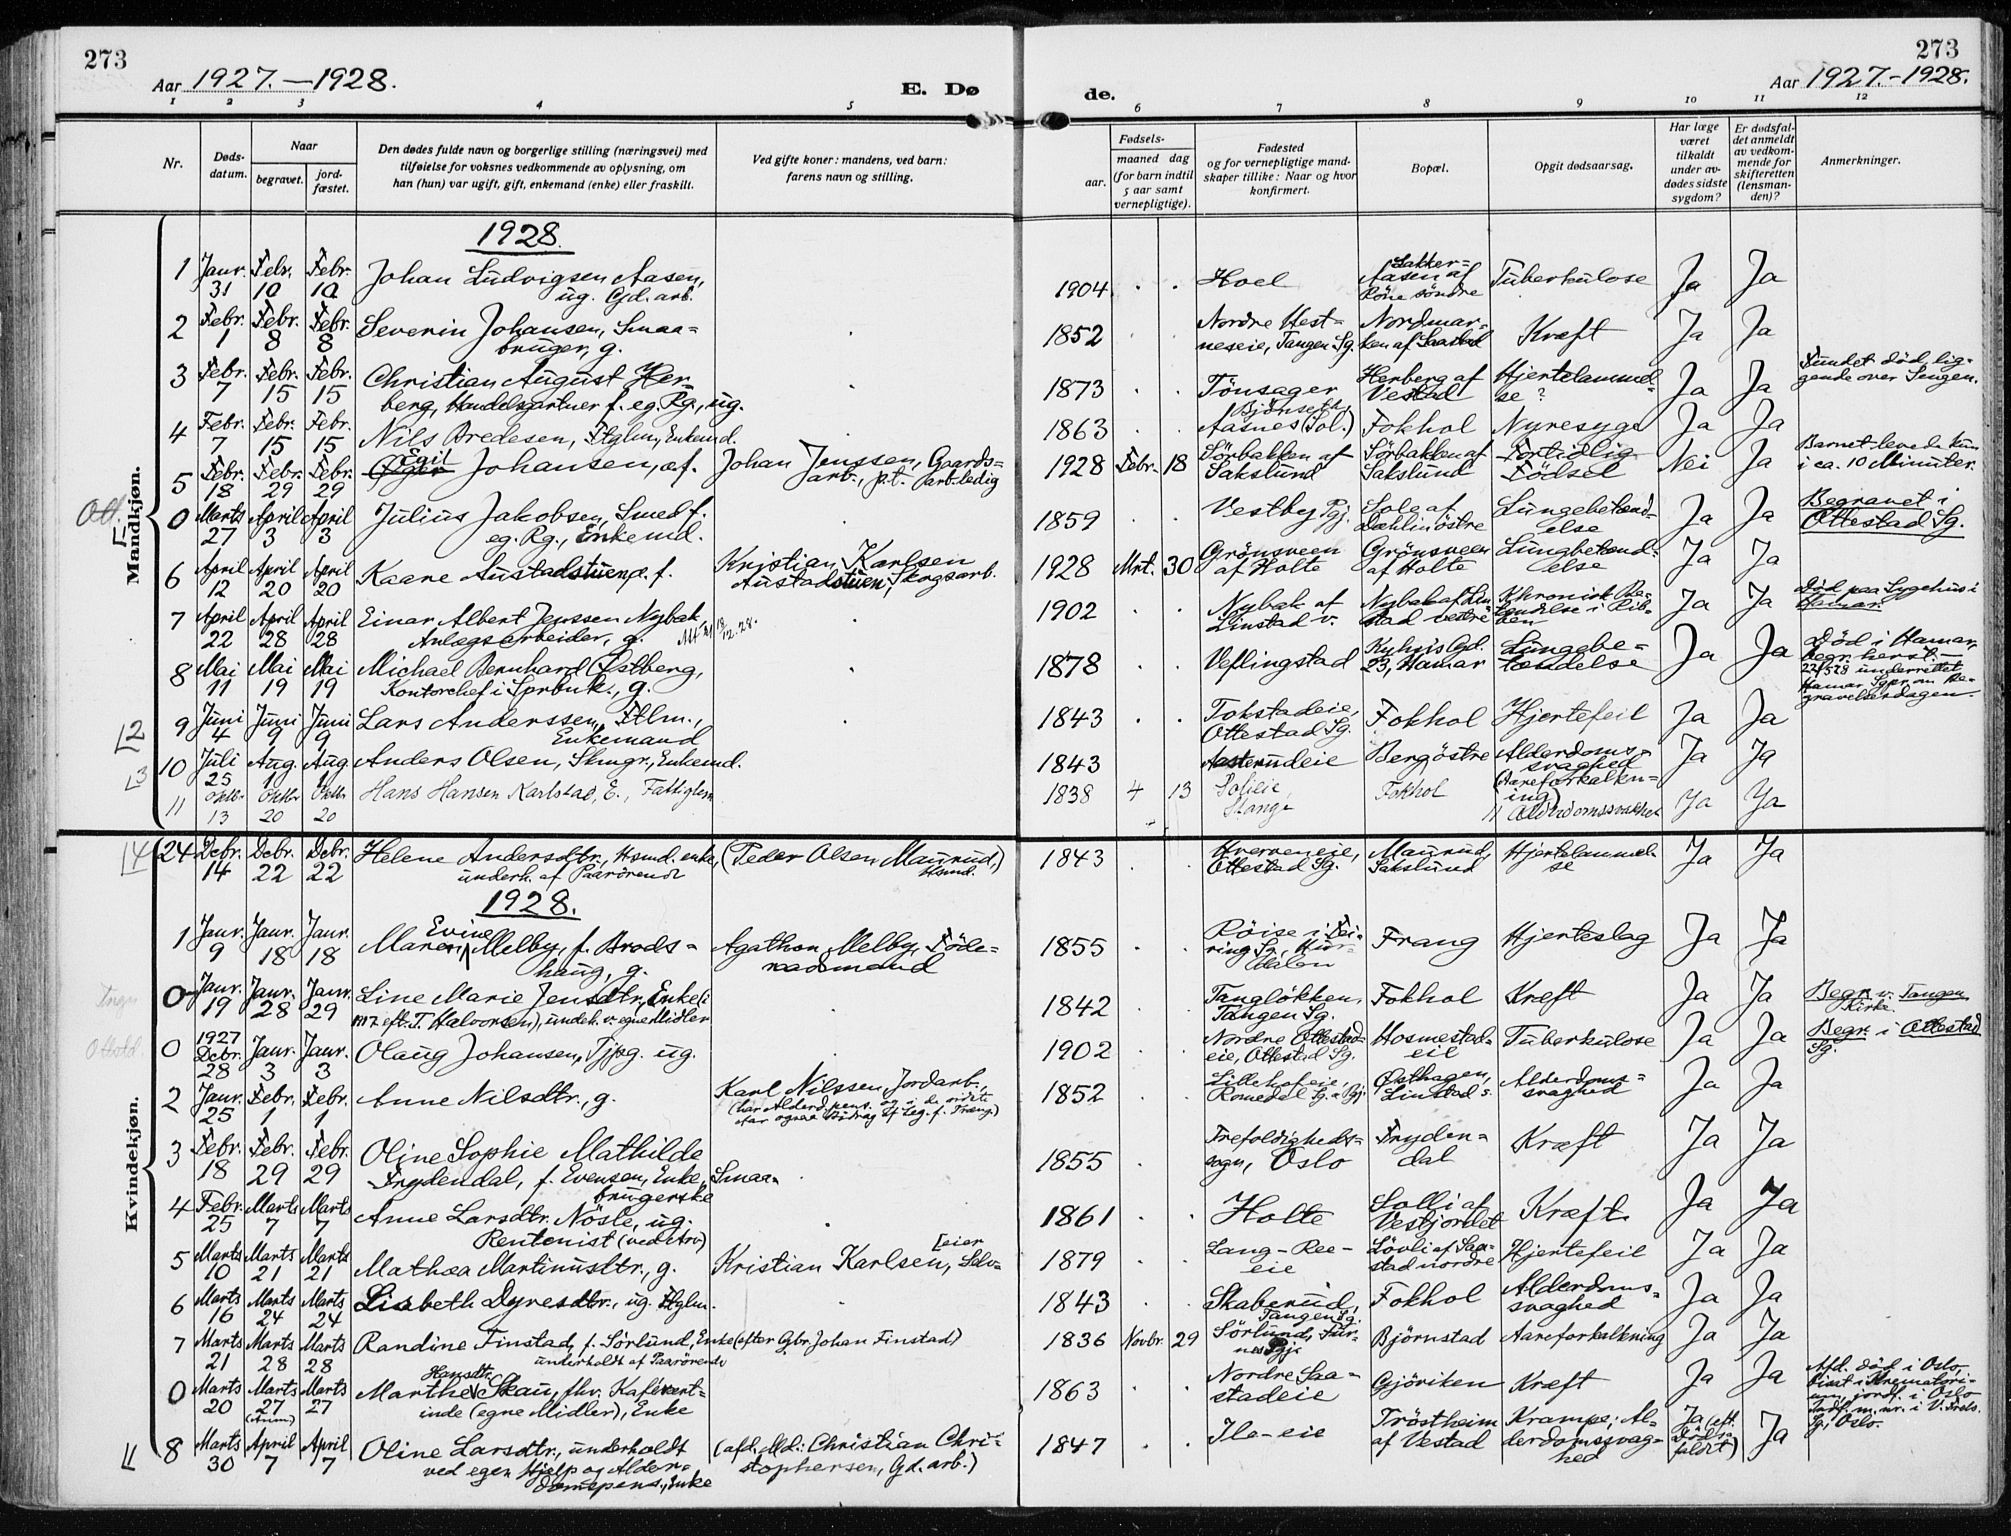 273
273
Aar 1927.—1928.
E. Dø
de.
Aar 1927.-1928.
1 2 3 4 5 6 7 8 9 10 11 12
Nr.
Døds-
datum.
Naar
begravet.
jord-
fæstet.
Den dødes fulde navn og borgerlige stilling (næringsvei) med
tilføielse for voksnes vedkommende av oplysning, om
han (hun) var ugift, gift, enkemand (enke) eller fraskilt.
Ved gifte koner: mandens, ved barn:
farens navn og stilling.
Fødsels-
aar.
maaned dag
(for barn indtil
5 aar samt
vernepligtige).
Fødested
og for vernepligtige mand-
skaper tillike: Naar og hvor
konfirmert.
Bopæl.
Opgit dødsaarsag.
Har læge
været
tilkaldt
under av-
dødes sidste
sygdom?
Er dødsfal-
det anmeldt
av vedkom-
mende for
skifteretten
(lensman-
den)?
Anmerkninger.
Mandkjøn.
1928.
1 Janr. 31 Febr. 10 Febr. 10 Johan Ludvigsen Aasen,
ug. Gd. arb. 1904 Hoel Aasen af Röne söndre Tuberkulose Ja Ja
2 Febr. 1 Febr. 8 Febr. 8 Severin Johansen, Smaa-
bruger, g. 1852 Nordre Hest-
neseie, Tangen Sg. Nordmar-
ken af Saastad Kræft Ja Ja
3 Febr. 7 Febr. 15 Febr. 15 Christian August Her-
berg, Handelsgartner f. eg. Rg., ug. 1873 Tönsager Herberg af
Vestad Hjertelammel-
se? Ja Ja Fundet död, lig-
gende over Sengen.
4 Febr. 7 Febr. 15 Febr. 15 Nils Bredesen, Ftglm, Enkemd. 1863 Aasnes (Sol.) Fokhol Nyresyge Ja Ja
5 Febr. 18 Febr. 29 Febr. 29 Egil Johansen, af. Johan Jenssen, Gaards-
arb., p.t. arb.ledig 1928 Febr. 18 Sörbakken af
Sakslund Sörbakken af
Sakslund Fortidlig
Födsel Nei Ja Barnet levede kun
i ca. 10 Minuter.
Ott. 0 Marts 27 April 3 April 3 Julius Jakobsen, Smed f.
eg. Rg., Enkemd. 1859 Vestby Pgj. Sole af
Dæhlin östre Lungebetænd-
else Ja Ja Begravet i
Ottestad Sg.
6 April 12 April 20 April 20 Kaare Austadstuen, a. f. Kristian Karlsen
Austadstuen, Skogsarb. 1928 Mrt. 30 Grönsveen
af Holte Grönsveen
af Holte Lungbetænd-
else Ja Ja
7 April 22 April 28 April 28 Einar Albert Jenssen Nybak
Anlægsarbeider, g. 1902 Nybak af
Linstad v. Nybak af Lin-
stad vestre Khronisk Be-
tændelse i Rib-
ben Ja Ja Död paa Sygehus i
Hamar.
8 Mai 11 Mai 19 Mai 19 Michael Bernhard Østberg,
Kontorchef i Sprbnk., g. 1878 Veflingstad
23, Hamar Lungebe-
tændelse Ja Ja Död i Hamar,
Begr. herst.—
22/5 28 underrettet
Hamar Sgpr. om Be-
gravelsesdagen.
L2 9 Juni 4 Juni 9 Juni 9 Lars Anderssen, Ftlm.,
Enkemand 1843 Tokstadeie,
Ottestad Sg. Fokhol Hjertefeil Ja Ja
L3 10 Juli 25 Aug. 1 Aug. 1 Anders Olsen, Skmgr., Enkemd. 1843 Aasterudeie Bergöstre Alderdoms-
svaghed
(Aareforkalkn-
ing) Ja Ja
11 Oktbr 13 Oktbr 20 Oktbr 20 Hans Hansen Karlstad, E., Fattiglem 1838 4 13 Solieie,
Stange Fokhol Ja Ja
L4 24 Debr. 14 Debr. 22 Debr. 22 Helene Andersdtr., Hsmd. enke,
underh. af Paarörende (Peder Olsen Maurud,
Hsmd.) 1843 Hverveneie,
Ottestad Sg. Maurud,
Sakslund Hjertelammel-
se Ja Ja
Kvindekjøn.
1928.
1 Janr. 9 Janr. 18 Janr. 18 Maren Evine Melby, f. Brods-
haug, g. Agathon Melby, Föde-
raadsmand 1855 Röise i Fei-
ring Sg., Hur-
dalen Frang Hjerteslag Ja Ja
Tngn 0 Janr. 19 Janr. 28 Janr. 29 Line Marie Jensdtr, Enke (i
eft. T. Halvorsen), underh. v. egne Midler 1842 Tangløkken,
Tangen Sg. Fokhol Kræft Ja Ja Begr. v. Tangen
Kirke.
Ottstd. 0 1927 Debr. 28 Janr. 3 Janr. 3 Olaug Johansen, Tjpg. ug. 1902 Nordre Ottestad-
eie, Ottestad Sg. Hosmestad-
eie Tuberkulose Ja Ja Begr. i Ottestad
Sg.
2 Janr. 25 Febr. 1 Febr. 1 Anne Nilsdtr., g. Karl Nilssen, Jordarb., 1852 Lillehofeie,
Romedal Sg. & Pgj. Østhagen,
Linstad s. Alderdoms-
svaghed Ja Ja
3 Febr. 18 Febr. 29 Febr. 29 Oline Sophie Mathilde
Frydendal, f. Evensen, Enke, Smaa-
brugerske 1855 Trefoldigheds-
sogn, Oslo Fryden-
dal Kræft Ja Ja
4 Febr. 25 Marts 7 Marts 7 Anne Larsdtr. Nösle, ug.
Rentenist (ved Arv) 1861 Holte Solli af
Vestjordet Kræft Ja Ja
5 Marts 10 Marts 21 Marts 21 Mathea Martinusdtr., g. Kristian Karlsen, Selv-
eier 1879 Lang-Ree-
eie Lövli af Saa-
stad nordre Hjertefeil Ja Ja
6 Marts 16 Marts 24 Marts 24 Lisbeth Dyresdtr., ug. Ftglm. 1843 Skaberud,
Tangen Sg. Fokhol Alderdoms-
svaghed Ja Ja
7 Marts 21 Marts 28 Marts 28 Randine Finstad, f. Sörlund, Enke (efter Gbr. Johan Finstad)
underholdt af Paarörende 1836 Novbr. 29 Sörlund, Fur-
nes Pgj. Björnstad Aareforkalkning Ja Ja
0 Marts 20 Marts 27 Marts 27 Marthe Hansdtr. Skau, fhv. Kafévert-
inde (egne Midler), Enke 1863 Nordre Saa-
stadeie Gjöriken Kræft Ja Ja Afd. död i Oslo,
bisat i Krematori-
um, jordf. i Oslo
8 Marts 30 April 7 April 7 Oline Larsdtr., underholdt
ved egen Hjelp og Alder-
domspens., Enke (afd. Md: Christian Chri-
stophersen, Gd. arb.) 1847 Ile-eie Tröstheim
af Vestad Krampe; Al-
derdomssvag-
hed Ja Ja